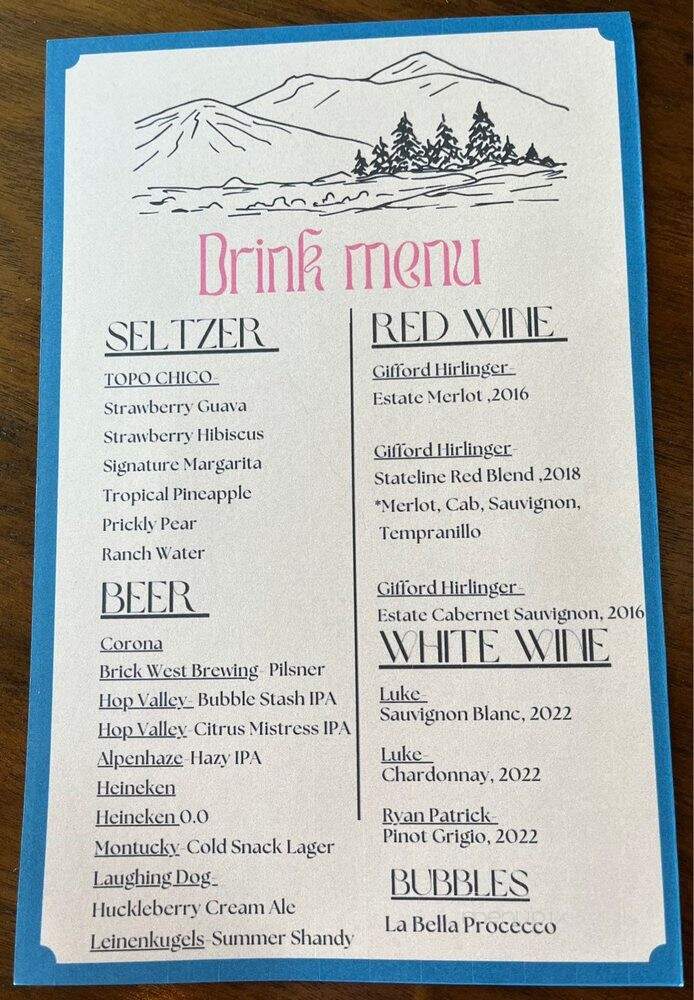 Drink menu
SELTZER
TOPO CHICO-
Strawberry Guava
Strawberry Hibiscus
Signature Margarita
Tropical Pineapple
Prickly Pear
Ranch Water
BEER
Corona
Brick West Brewing- Pilsner
Hop Valley- Bubble Stash IPA
Hop Valley-Citrus Mistress IPA
Alpenhaze-Hazy IPA
Heineken
Heineken 0.0
Montucky-Cold Snack Lager
Laughing Dog-
Huckleberry Cream Ale
Leinenkugels-Summer Shandy
RED WINE
Gifford Hirlinger-
Estate Merlot ,2016
Gifford Hirlinger-
Stateline Red Blend ,2018
*Merlot, Cab, Sauvignon,
Tempranillo
Gifford Hirlinger-
Estate Cabernet Sauvignon, 2016
WHITE WINE
Luke-
Sauvignon Blanc, 2022
Luke-
Chardonnay, 2022
Ryan Patrick-
Pinot Grigio, 2022
BUBBLES
La Bella Procecco